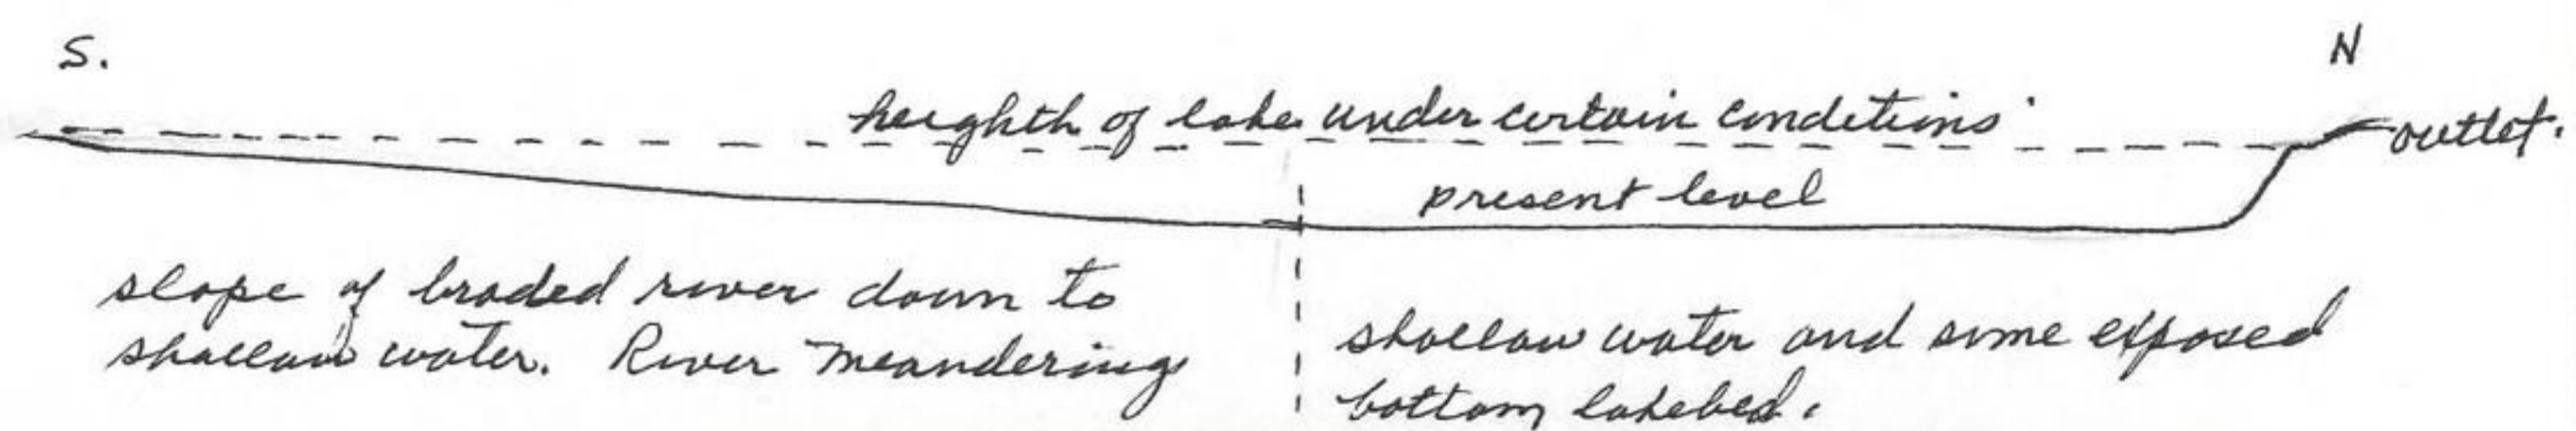 S.
N
heighth of lake under certain conditions
outlet.
present level
slope of braded river down to
shallow water. River meandering
shallow water and some exposed
bottom lakebed.